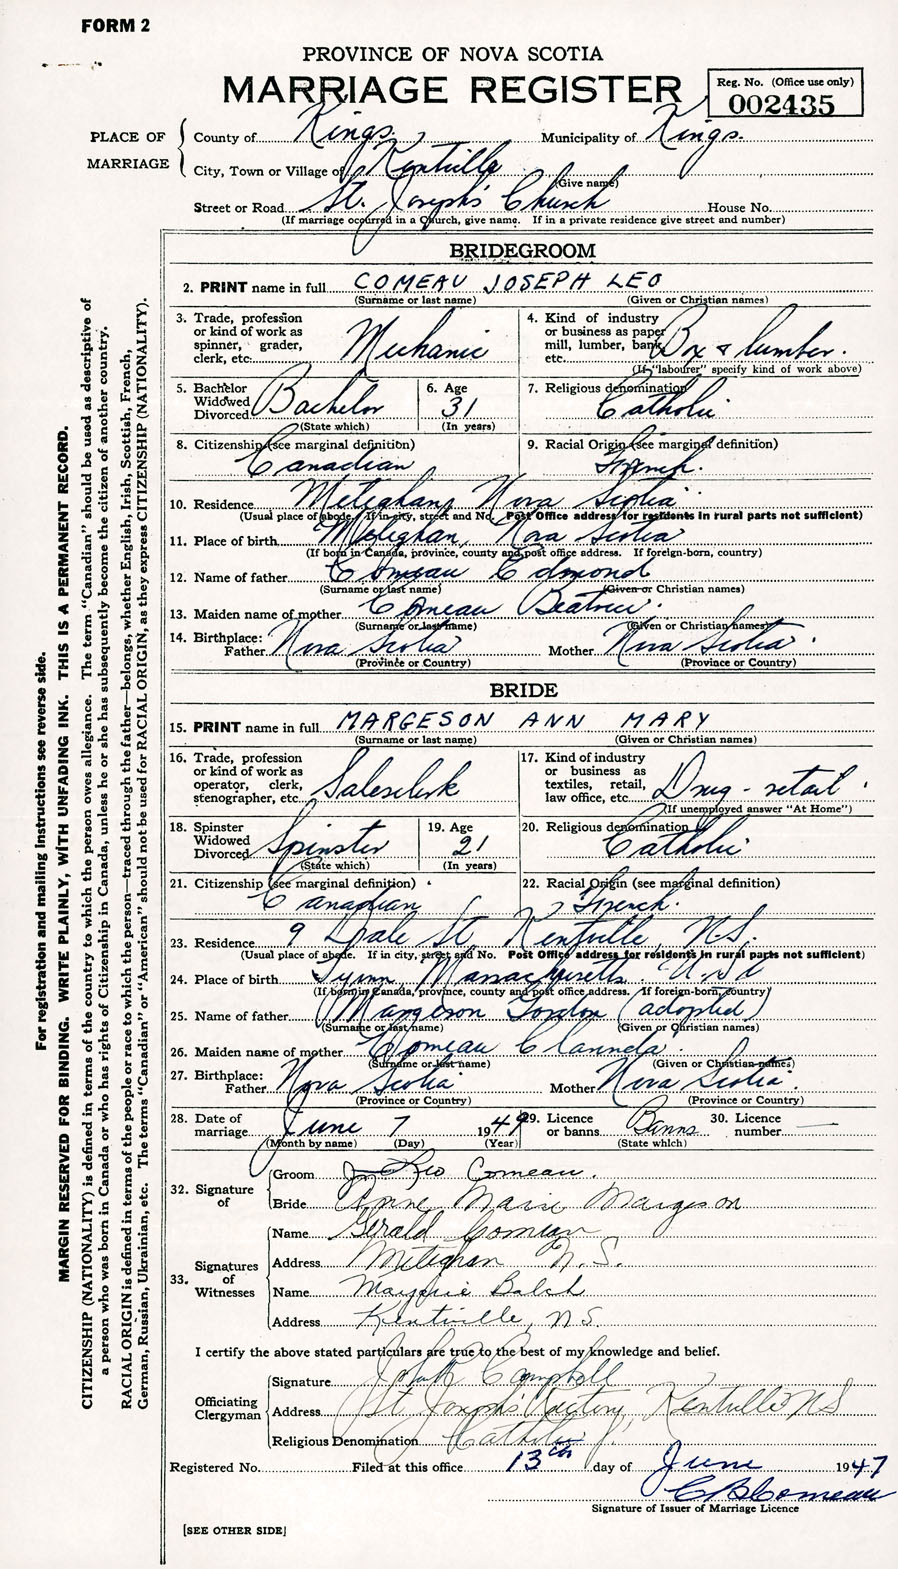 FORM 2
PROVINCE OF NOVA SCOTIA
MARRIAGE REGISTER
Reg. No. (Office use only)
002435
PLACE OF MARRIAGE
County of Kings Municipality of Kings.
City, Town or Village of Kentville
(Give name)
Street or Road St. Joseph's Church House No.
(If marriage occurred in a Church, give name. If in a private residence give street and number)
BRIDEGROOM
2. PRINT name in full COMEAU JOSEPH LEO
(Surname or last name) (Given or Christian names)
3. Trade, profession or kind of work as spinner, grader, clerk, etc. Mechanic
4. Kind of industry or business as paper mill, lumber, bank, etc. Box & lumber.
(If "labourer" specify kind of work above)
5. Bachelor Widowed Divorced Bachelor
(State which)
6. Age 31
(In years)
7. Religious denomination Catholic
8. Citizenship (see marginal definition) Canadian
9. Racial Origin (see marginal definition) French.
10. Residence Meteghan, Nova Scotia
(Usual place of abode. If in city, street and No. Post Office address for residents in rural parts not sufficient)
11. Place of birth Meteghan, Nova Scotia
(If born in Canada, province, county and post office address. If foreign-born, country)
12. Name of father Comeau Edmond
(Surname or last name) (Given or Christian names)
13. Maiden name of mother Comeau Beatrice.
(Surname or last name) (Given or Christian names)
14. Birthplace: Father Nova Scotia Mother Nova Scotia.
(Province or Country) (Province or Country)
BRIDE
15. PRINT name in full MARGESON ANN MARY
(Surname or last name) (Given or Christian names)
16. Trade, profession or kind of work as operator, clerk, stenographer, etc. Salesclerk
17. Kind of industry or business as textiles, retail, law office, etc. Drug - retail.
(If unemployed answer "At Home")
18. Spinster Widowed Divorced Spinster
(State which)
19. Age 21
(In years)
20. Religious denomination Catholic
21. Citizenship (see marginal definition) Canadian
22. Racial Origin (see marginal definition) French.
23. Residence 9 Dale St Kentville, N.S.
(Usual place of abode. If in city, street and No. Post Office address for residents in rural parts not sufficient)
24. Place of birth Lynn Massachusetts U.S.A
(If born in Canada, province, county and post office address. If foreign-born, country)
25. Name of father Margeson Gordon (adopted)
(Surname or last name) (Given or Christian names)
26. Maiden name of mother Comeau
(Surname or last name) (Given or Christian names)
27. Birthplace: Father Nova Scotia Mother Nova Scotia.
(Province or Country) (Province or Country)
28. Date of marriage June 7 19
(Month by name) (Day) (Year)
29. Licence or banns Banns
(State which)
30. Licence number
32. Signature of
Groom J. Leo Comeau.
Bride Anne Marie Margeson
33. Signatures of Witnesses
Name Gerald Comeau
Address Meteghan N.S.
Name Marjorie Balch
Address Kentville, NS
I certify the above stated particulars are true to the best of my knowledge and belief.
Officiating Clergyman
Signature Campbell
Address St Joseph's Rectory, Kentville NS
Religious Denomination Catholic
Registered No. Filed at this office 13th day of June 1947
C B Comeau
Signature of Issuer of Marriage Licence
[SEE OTHER SIDE]
For registration and mailing instructions see reverse side.
MARGIN RESERVED FOR BINDING. WRITE PLAINLY, WITH UNFADING INK. THIS IS A PERMANENT RECORD.
CITIZENSHIP (NATIONALITY) is defined in terms of the country to which the person owes allegiance. The term "Canadian" should be used as descriptive of
a person who was born in Canada or who has rights of Citizenship in Canada, unless he or she has subsequently become the citizen of another country.
RACIAL ORIGIN is defined in terms of the people or race to which the person—traced through the father—belongs, whether English, Irish, Scottish, French,
German, Russian, Ukrainian, etc. The terms "Canadian" or "American" should not be used for RACIAL ORIGIN, as they express CITIZENSHIP (NATIONALITY).